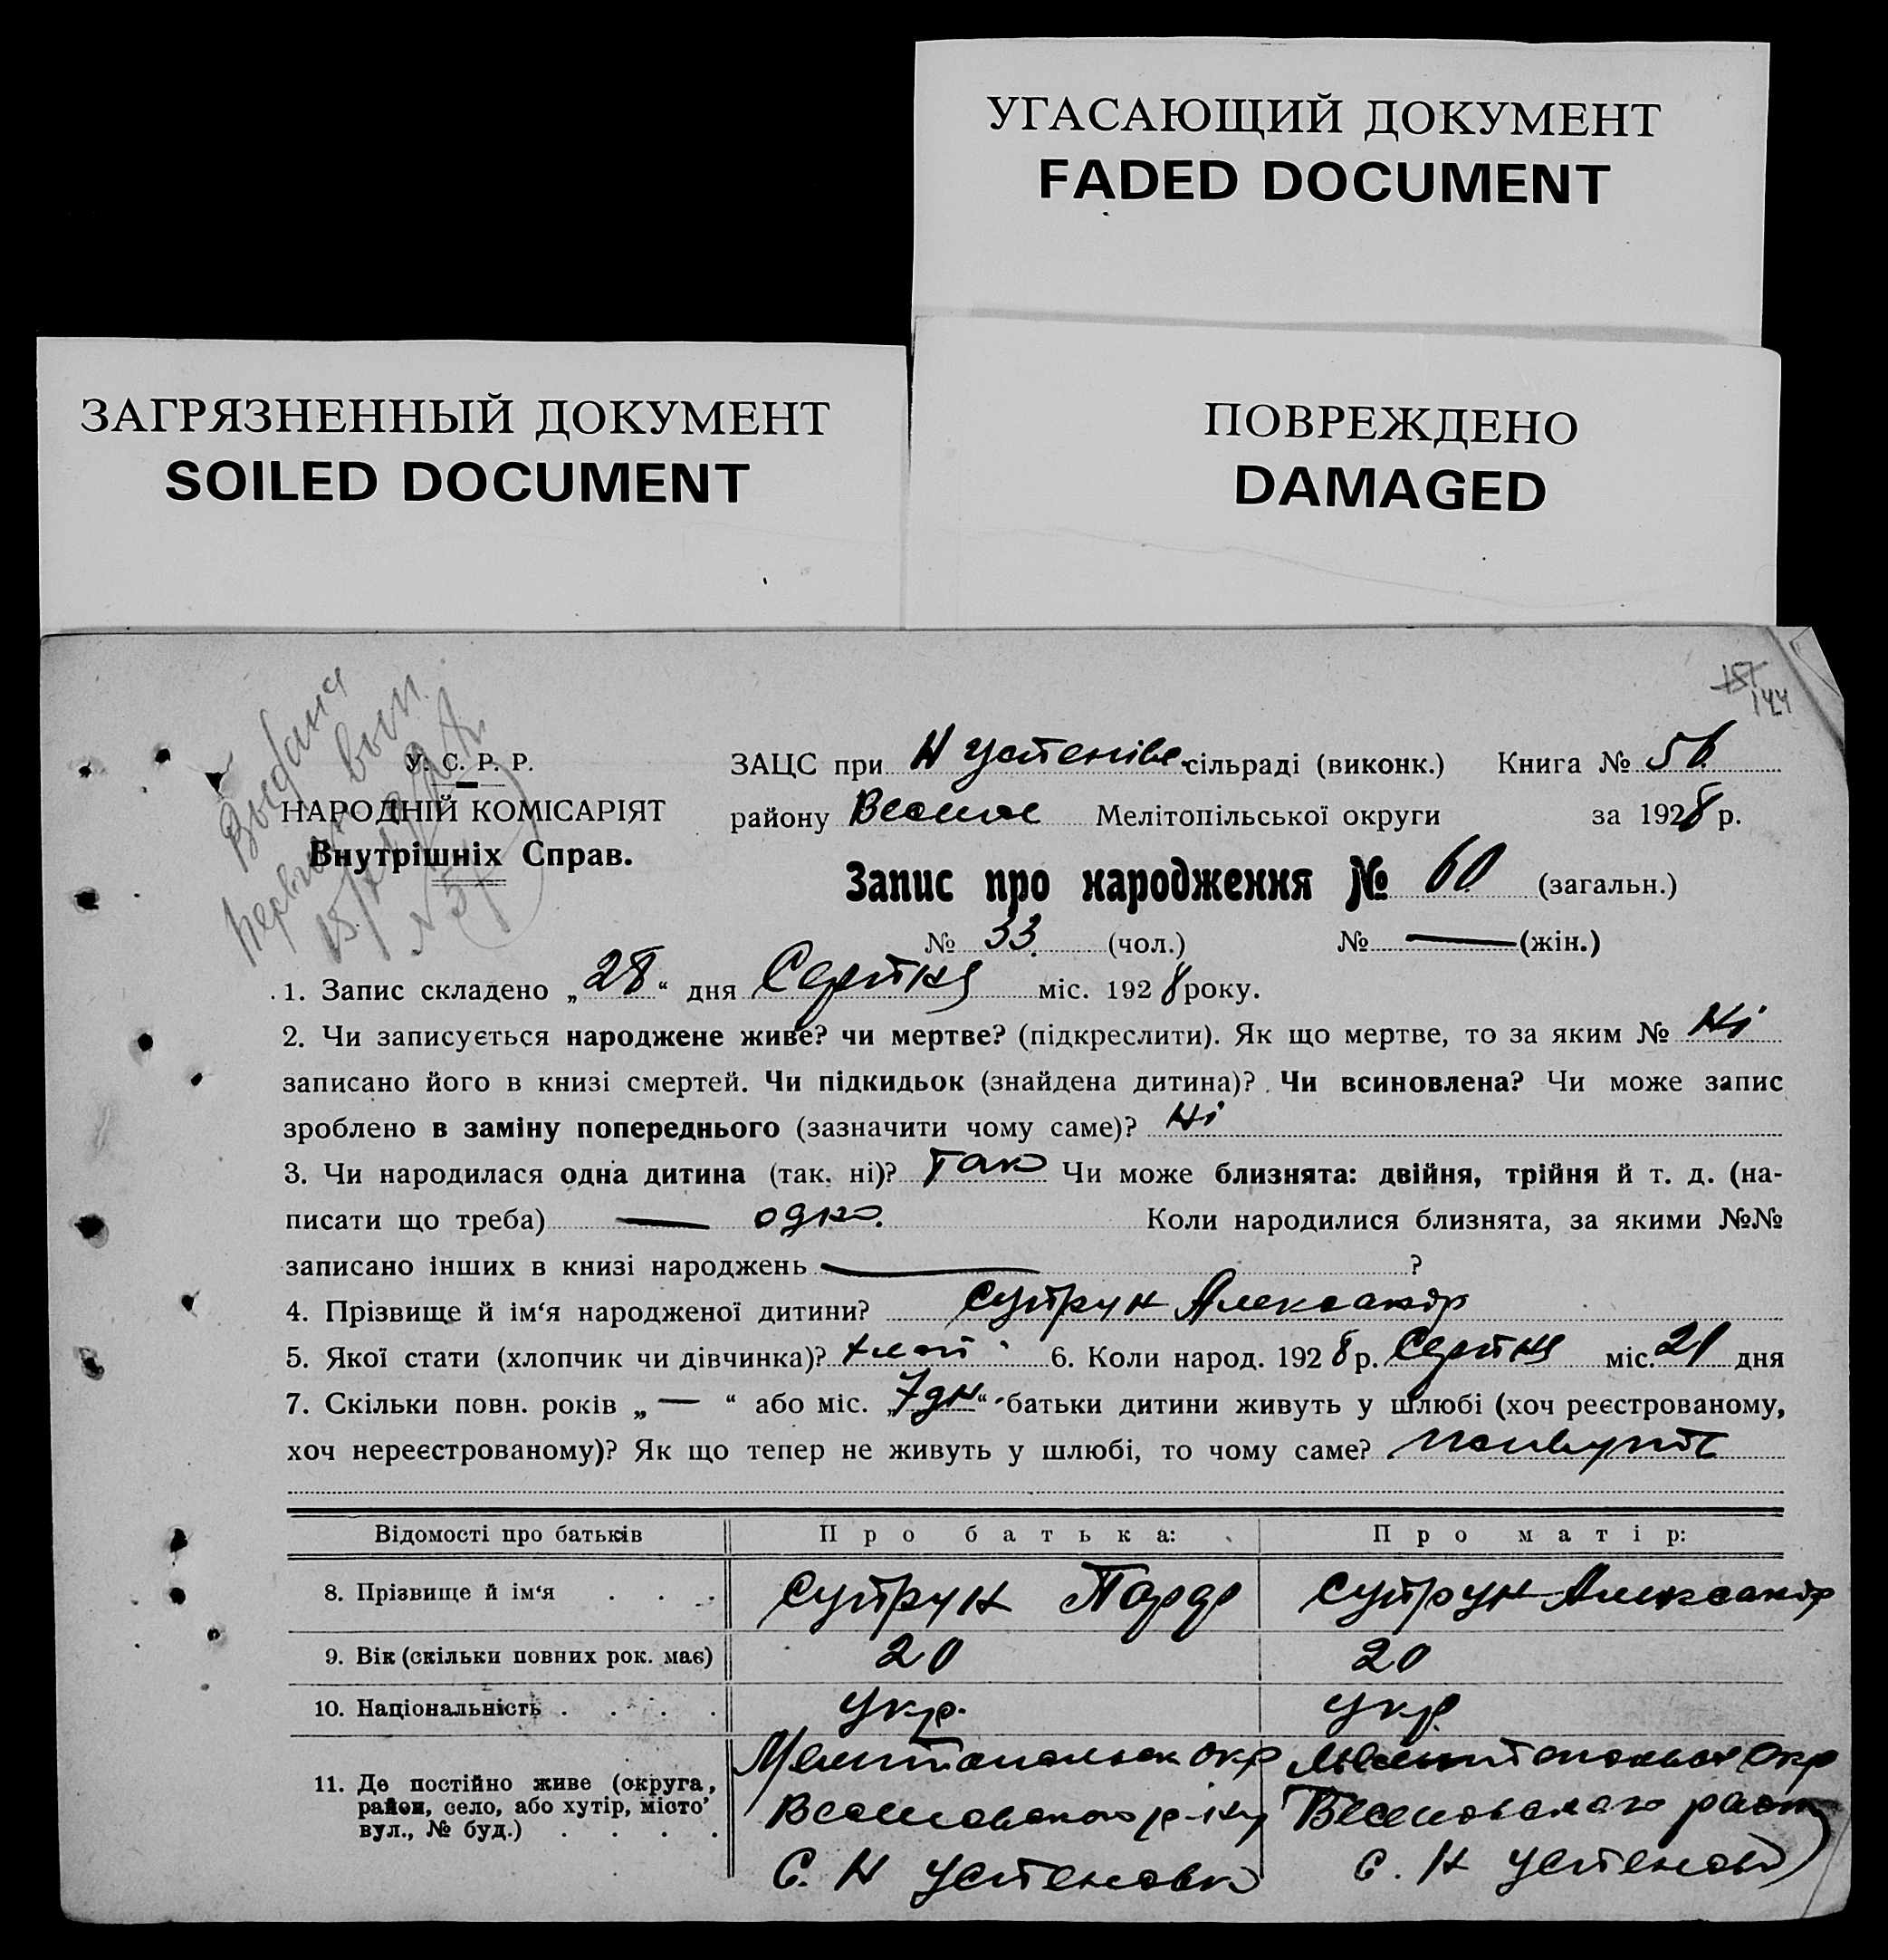 УГАСАЮЩИЙ ДОКУМЕНТ
FADED DOCUMENT
ЗАГРЯЗНЕННЫЙ ДОКУМЕНТ
SOILED DOCUMENT
ПОВРЕЖДЕНО
DAMAGED
151
144
Выдана
У. С. Р. Р.
НАРОДНІЙ КОМІСАРІЯТ
Внутрішніх Справ.
ЗАЦС при Н Устенівс. сільраді (виконк.) Книга № 56
району Весели Мелітопільської округи за 1928 р.
Запис про народження № 60 (загальн.)
№ 33 (чол.) № — (жін.)
1. Запис складено „28“ дня Серпня міс. 1928 року.
2. Чи записується народжене живе? чи мертве? (підкреслити). Як що мертве, то за яким № Ні
записано його в книзі смертей. Чи підкидьок (знайдена дитина)? Чи всиновлена? Чи може запис
зроблено в заміну попереднього (зазначити чому саме)? Ні
3. Чи народилася одна дитина (так, ні)? Так Чи може близнята: двійня, трійня й т. д. (на-
писати що треба) — одно. Коли народилися близнята, за якими №№
записано інших в книзі народжень — ?
4. Прізвище й ім‘я народженої дитини? Супрун Александр
5. Якої стати (хлопчик чи дівчинка)? 6. Коли народ. 1928 р. Серпня міс. 21 дня
7. Скільки повн. років „ — “ або міс. „7 дн“ батьки дитини живуть у шлюбі (хоч реєстрованому,
хоч нереєстрованому)? Як що тепер не живуть у шлюбі, то чому саме?
Відомості про батьків Про батька: Про матір:
8. Прізвище й ім‘я . . . Супрун Супрун Александр
9. Вік (скільки повних рок. має) 20 20
10. Національність . . . . Укр. Укр.
11. Де постійно живе (округа, Мелитопольск Окр Мелитопольск Окр
район, село, або хутір, місто, Веселовского р-ну Веселовского район
вул., № буд.) . . . . С. Н Устеновк с. Н Устеновк